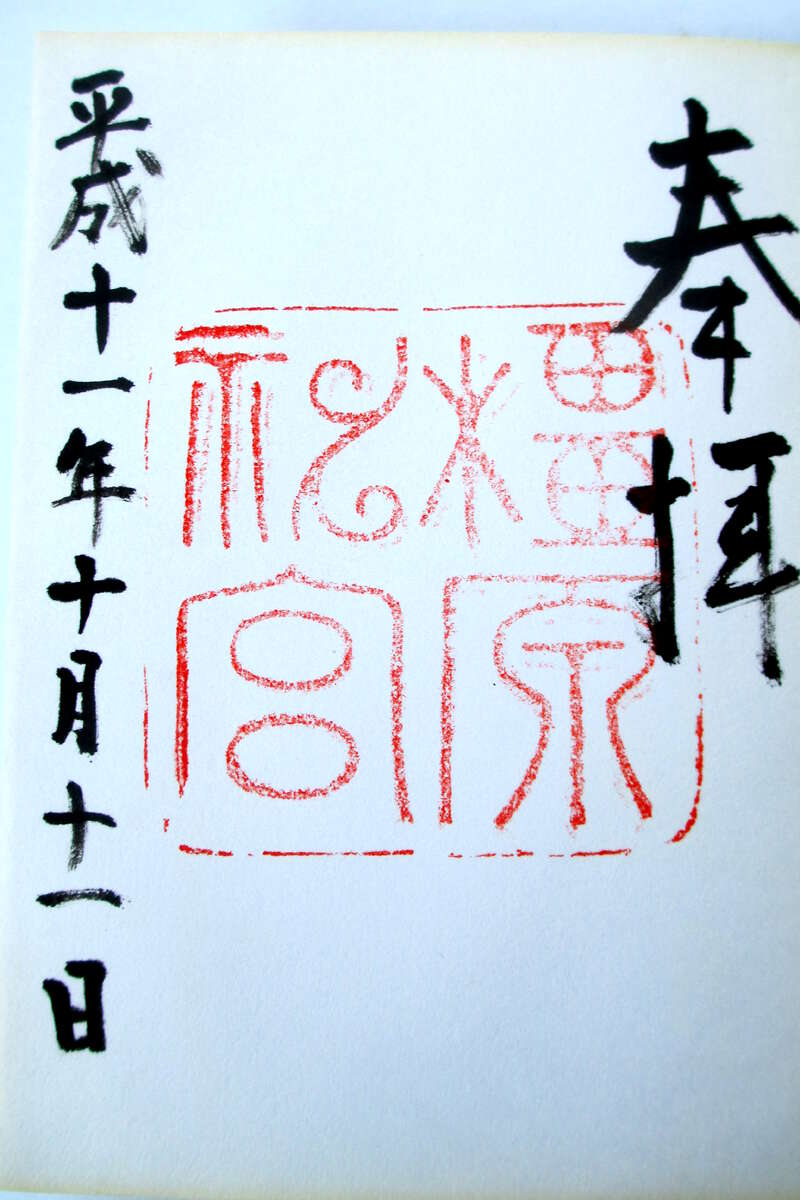 奉拝
橿原
神宮
平成十一年十月十一日